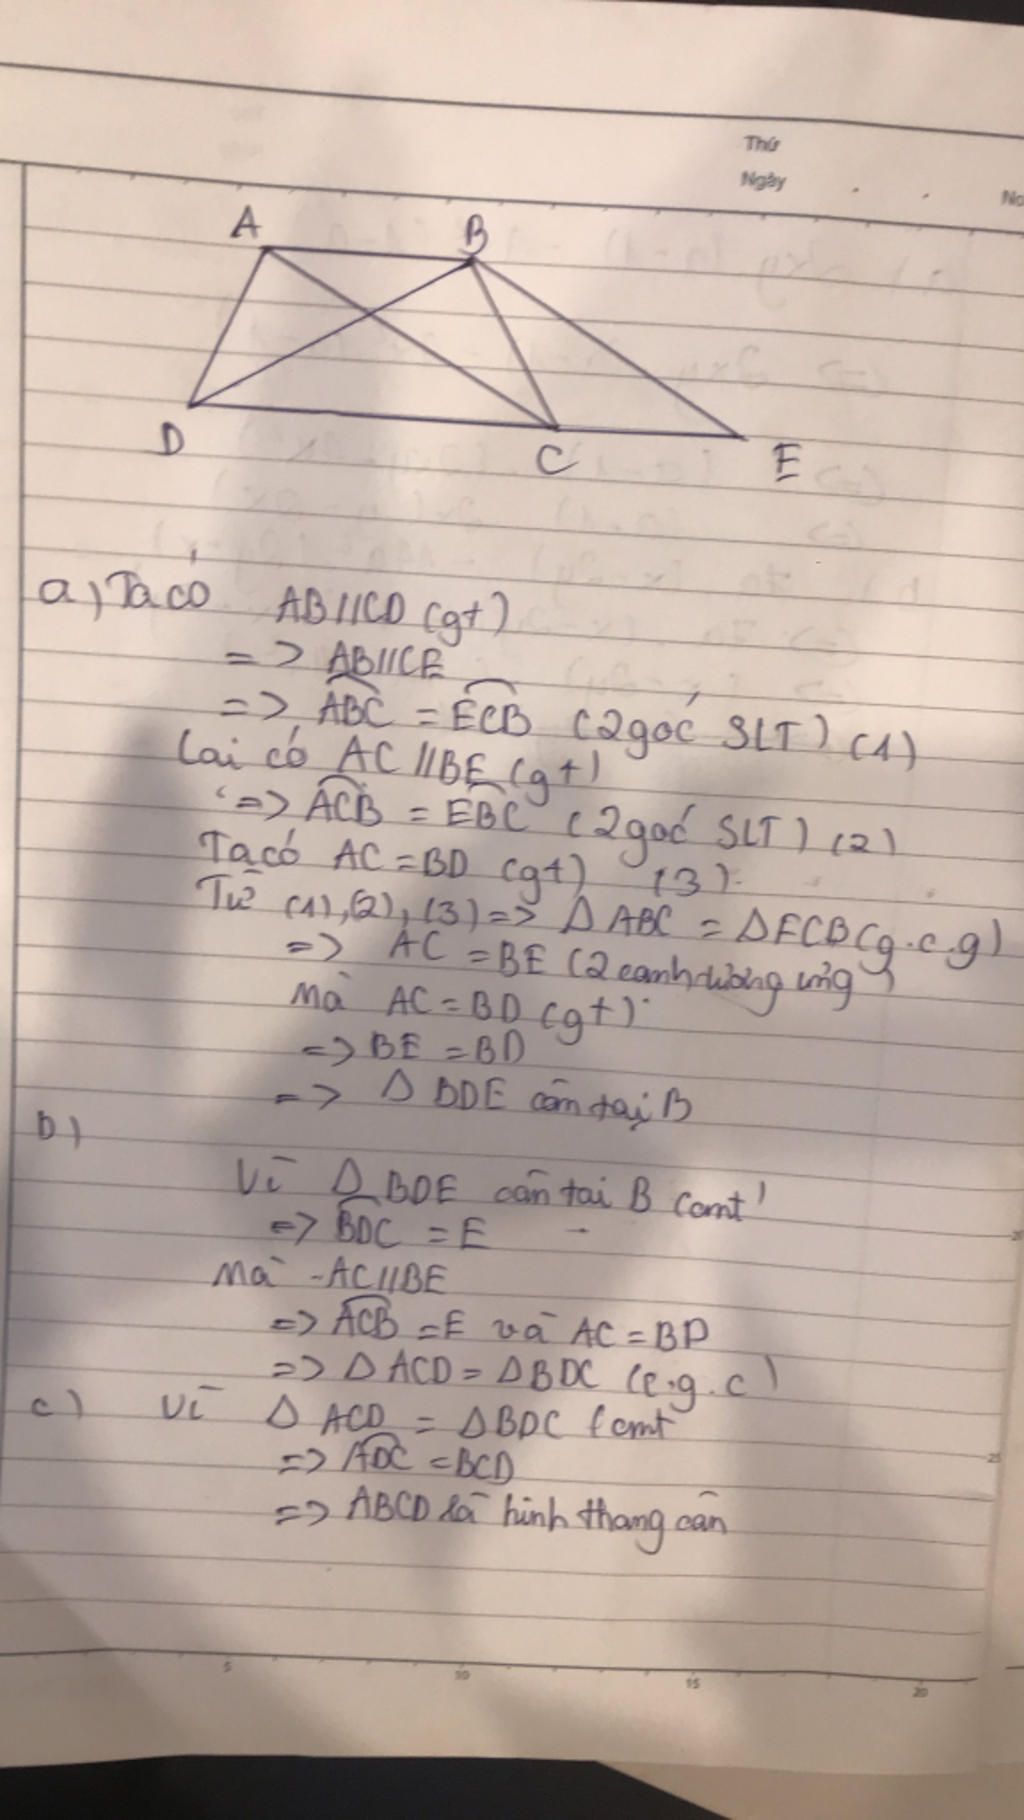 Thứ
Ngày
No
A
B
D
C
E
a) Ta có AB//CD (gt)
=> AB//CE
=> ABC = ECB (2 góc SLT) (1)
Lai có AC//BE (gt)
=> ACB = EBC (2 góc SLT) (2)
Ta có AC = BD (gt) (3)
Từ (1), (2), (3) => Δ ABC = Δ ECB (g.c.g)
=> AC = BE (2 canh tương ứng)
Mà AC = BD (gt)
=> BE = BD
=> Δ BDE cân tại B
b)
Vì Δ BDE cân tai B (cmt)
=> BDC = E
Mà AC//BE
=> ACB = E và AC = BD
=> Δ ACD = Δ BDC (c.g.c)
c) Vì Δ ACD = Δ BDC (cmt
=> ADC = BCD
=> ABCD là hình thang cân
20
25
5
10
15
20